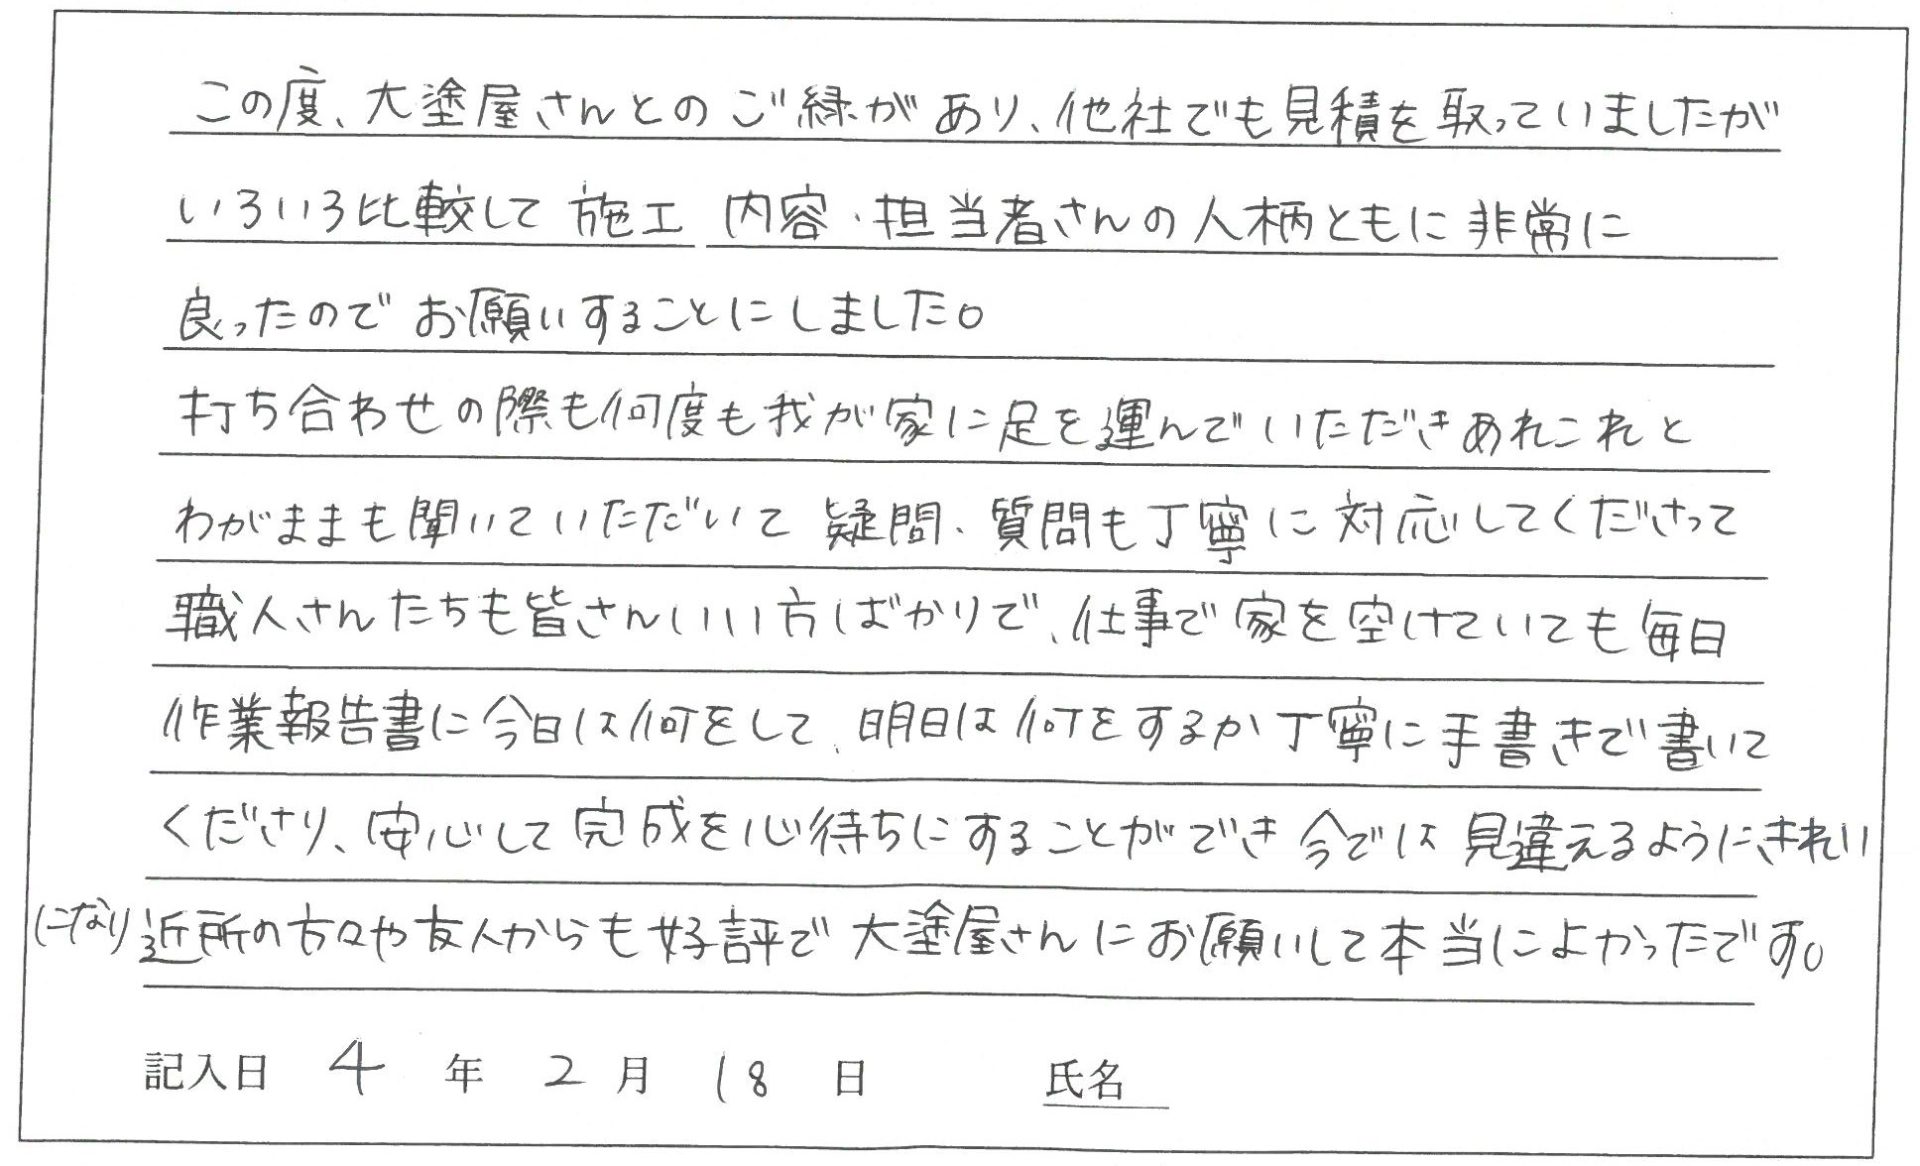 この度、大塗屋さんとのご縁があり、他社でも見積を取っていましたが
いろいろ比較して施工内容・担当者さんの人柄ともに非常に
良ったのでお願いすることにしました。
打ち合わせの際も何度も我が家に足を運んでいただきあれこれと
わがままも聞いていただいて疑問、質問も丁寧に対応してくださって
職人さんたちも皆さんいい方ばかりで、仕事で家を空けていても毎日
作業報告書に今日は何をして、明日は何をするか丁寧に手書きで書いて
くださり、安心して完成を心待ちにすることができ今では見違えるようにきれい
になり近所の方々や友人からも好評で大塗屋さんにお願いして本当によかったです。
記入日 4 年 2 月 18 日 氏名